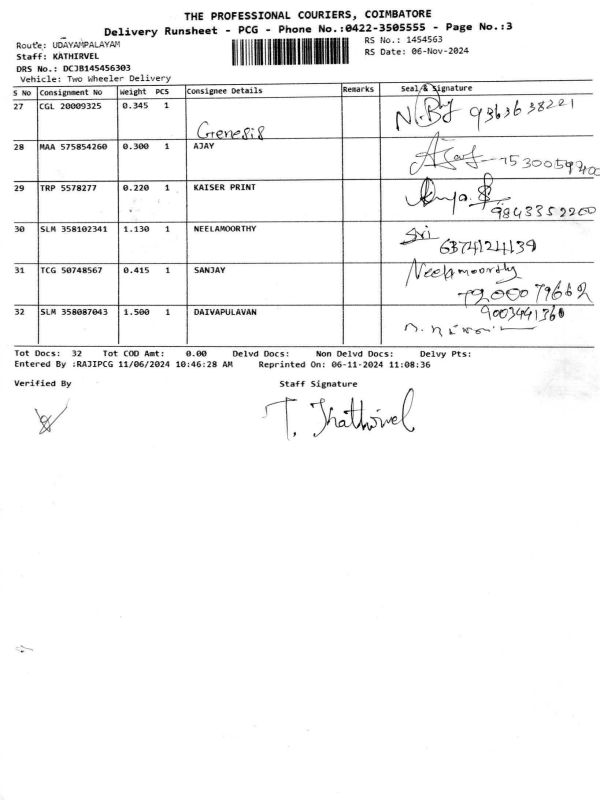 THE PROFESSIONAL COURIERS, COIMBATORE
Delivery Runsheet - PCG - Phone No.:0422-3505555 - Page No.:3
Route: UDAYAMPALAYAM
RS No.: 1454563
Staff: KATHIRVEL
RS Date: 06-Nov-2024
DRS No.: DCJB145456303
Vehicle: Two Wheeler Delivery
S No Consignment No Weight PCS Consignee Details Remarks Seal & Signature
27 CGL 20009325 0.345 1 9363638221
Genesis
28 MAA 575854260 0.300 1 AJAY
29 TRP 5578277 0.220 1 KAISER PRINT
9843352200
30 SLM 358102341 1.130 1 NEELAMOORTHY Sri
6374124139
31 TCG 50748567 0.415 1 SANJAY Neelamoorthy
32 SLM 358087043 1.500 1 DAIVAPULAVAN 9003441360
Tot Docs: 32 Tot COD Amt: 0.00 Delvd Docs: Non Delvd Docs: Delvy Pts:
Entered By :RAJIPCG 11/06/2024 10:46:28 AM Reprinted On: 06-11-2024 11:08:36
Verified By Staff Signature
T. Kathirvel